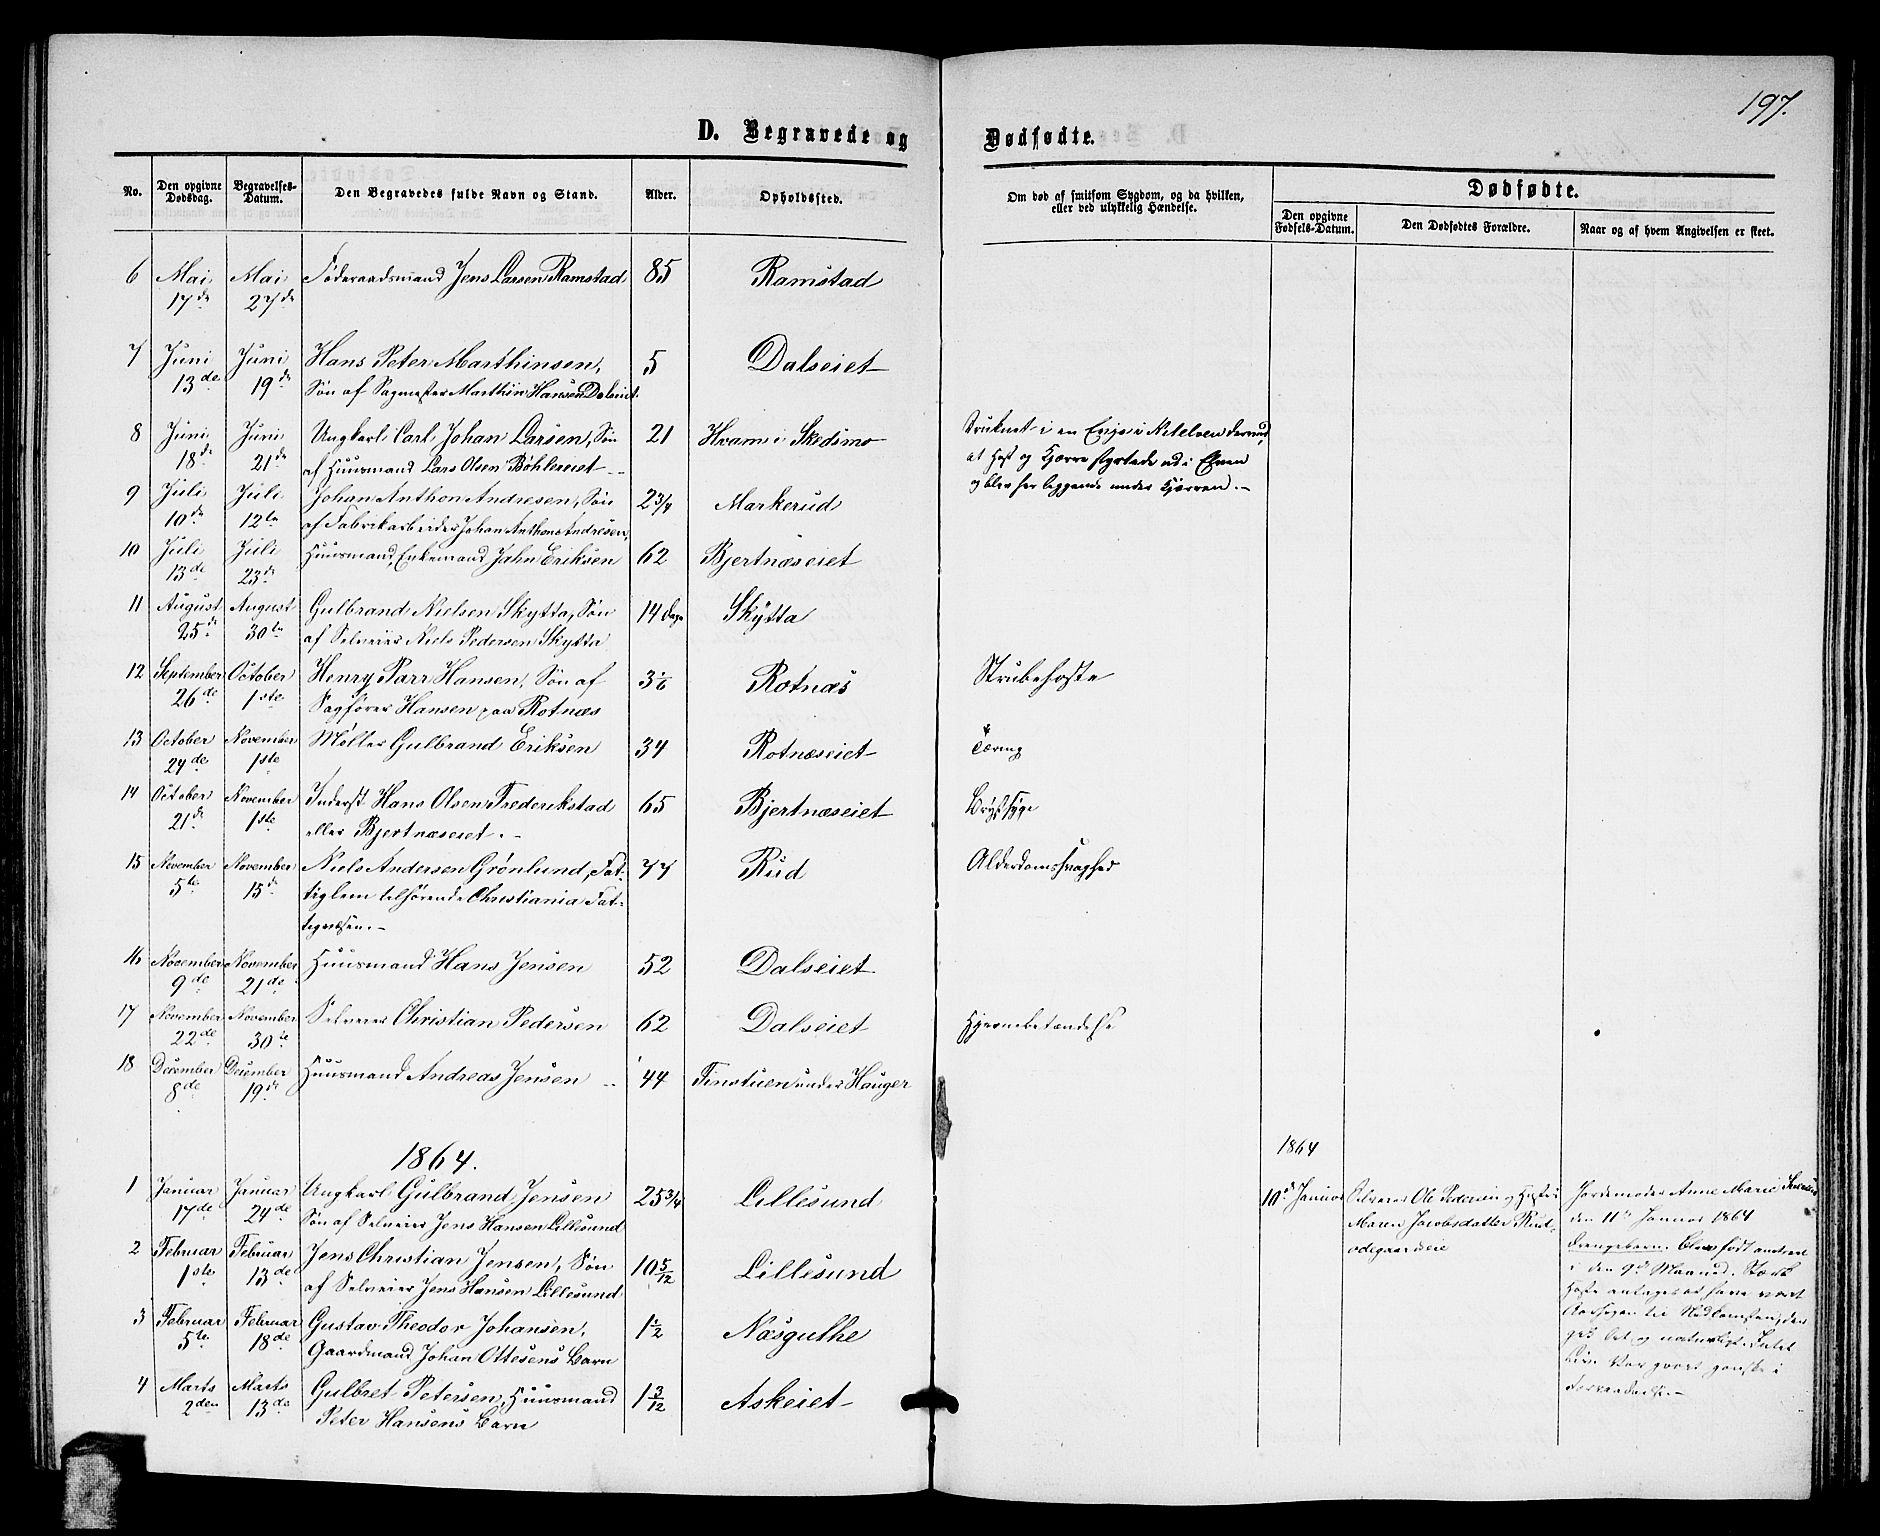 197.
D. Begravede og Dødfødte.
No. Den opgivne Dødsdag. Begravelses-Datum. Den Begravedes fulde Navn og Stand. Alder. Opholdssted. Om død af smitsom Sygdom, og da hvilken, eller ved ulykkelig Hændelse. Dødfødte.
Den opgivne Fødsels-Datum. Den Dødfødtes Forældre. Naar og af hvem Angivelsen er skeet.
6 Mai Mai Føderaadsmand Jens Larsen Ramstad 85 Ramstad
17de 27de
7 Juni Juni Hans Peter Marthinsen, 5 Dalseiet
13de 19de Søn af Sagmester Marthin Hansen Dalseiet
8 Juni Juni Ungkarl Carl Johan Larsen, Søn 21 Hvam i Skedsmo Druknet i en Evje i Nitelven derved,
18de 21de af Huusmand Lars Olsen Bøhlereiet at Hest og Kjærre styrtede ud i Elven
og blev her liggende under Kjærren.
9 Juli Juli Johan Anthon Andresen, Søn 2 3/4 Markerud
10de 12te af Fabrikarbeider Johan Anthon Andresen,
10 Juli Juli Huusmand, Enkemand Jahn Eriksen 62 Bjertnæseiet
13de 23de
11 August August Gulbrand Nielsen Skytta, Søn 14 Dage Skytta
25de 30te af Selveier Niels Pedersen Skytta
12 September October Henry Parr Hansen, Søn af 3 1/6 Rotnæs Strubehoste
26de 1ste Sagfører Hansen paa Rotnæs
13 October November Møller Gulbrand Eriksen 34 Rotnæseiet Tæring
24de 1ste
14 October November Inderst Hans Olsen Frederikstad 65 Bjertnæseiet Brystsyge
21de 1ste eller Bjertnæseiet.
15 November November Niels Andersen Grønlund, Fat- 77 Rud Alderdomssvaghed
5te 15de tiglem tilhørende Christiania Fat-
tigvæsen.
16 November November Huusmand Hans Jensen 52 Dalseiet
9de 21de
17 November November Selveier Christian Pedersen 62 Dalseiet Hjernebetændelse
22de 30te
18 December December Huusmand Andreas Jensen 44 Tinstuen under Hauger
8de 19de
1864. 1864
1 Januar Januar Ungkarl Gulbrand Jensen 25 3/4 Lillesund 10de Januar Selveier Ole Pedersen og Hustru Jordemoder Anne Marie
17de 24de Søn af Selveier Jens Hansen Lillesund Maren Jacobsdatter Rud- den 11te Januar 1864
ødegaardseie Drengebarn. Blev født
2 Februar Februar Jens Christian Jensen, Søn 10 5/12 Lillesund i den 9de Maaned. Stærk
1ste 13de af Selveier Jens Hansen Lillesund Hoste antages at have været
3 Februar Februar Gustav Theodor Johansen, 1 1/2 Næsguthe Aarsagen til Nedkomsten, der
5te 18de Gaardmand Johan Ottesens Barn gik let og naturligt.
4 Marts Marts Gulbret Petersen, Huusmand 1 3/12 Askeiet
2den 13de Peter Hansens Barn